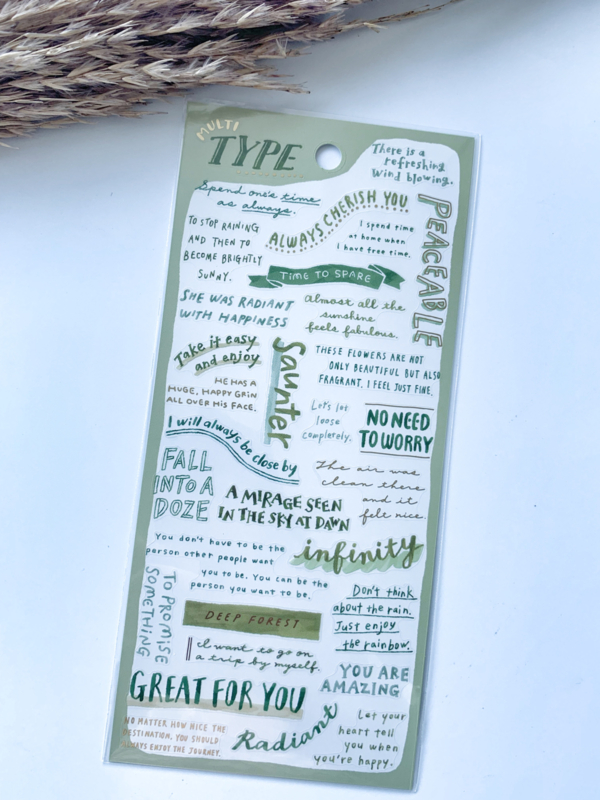 MULTI
TYPE
There is a
refreshing
Wind blowing.
Spend one's time
as always.
ALWAYS CHERISH YOU
PEACEABLE
TO STOP RAINING
AND THEN TO
BECOME BRIGHTLY
SUNNY.
I spend time
at home when
I have free time.
TIME TO SPARE
SHE WAS RADIANT
WITH HAPPINESS
almost all the
sunshine
feels fabulous.
Take it easy
and enjoy
Saunter
THESE FLOWERS ARE NOT
ONLY BEAUTIFUL BUT ALSO
FRAGRANT. I FEEL JUST FINE.
HE HAS A
HUGE, HAPPY GRIN
ALL OVER HIS FACE.
Let's let
loose
completely.
NO NEED
TO WORRY
I will always be close by
FALL
INTO A
DOZE
The air was
clean there
and it
felt nice.
A MIRAGE SEEN
IN THE SKY AT DAWN
You don't have to be the
person other people want
you to be. You can be the
person you want to be.
infinity
TO PROMISE
SOMETHING
Don't think
about the rain.
Just enjoy
the rainbow.
DEEP FOREST
I want to go on
a trip by myself.
YOU ARE
AMAZING
GREAT FOR YOU
NO MATTER HOW NICE THE
DESTINATION, YOU SHOULD
ALWAYS ENJOY THE JOURNEY.
Radiant
Let your
heart tell
you when
you're happy.